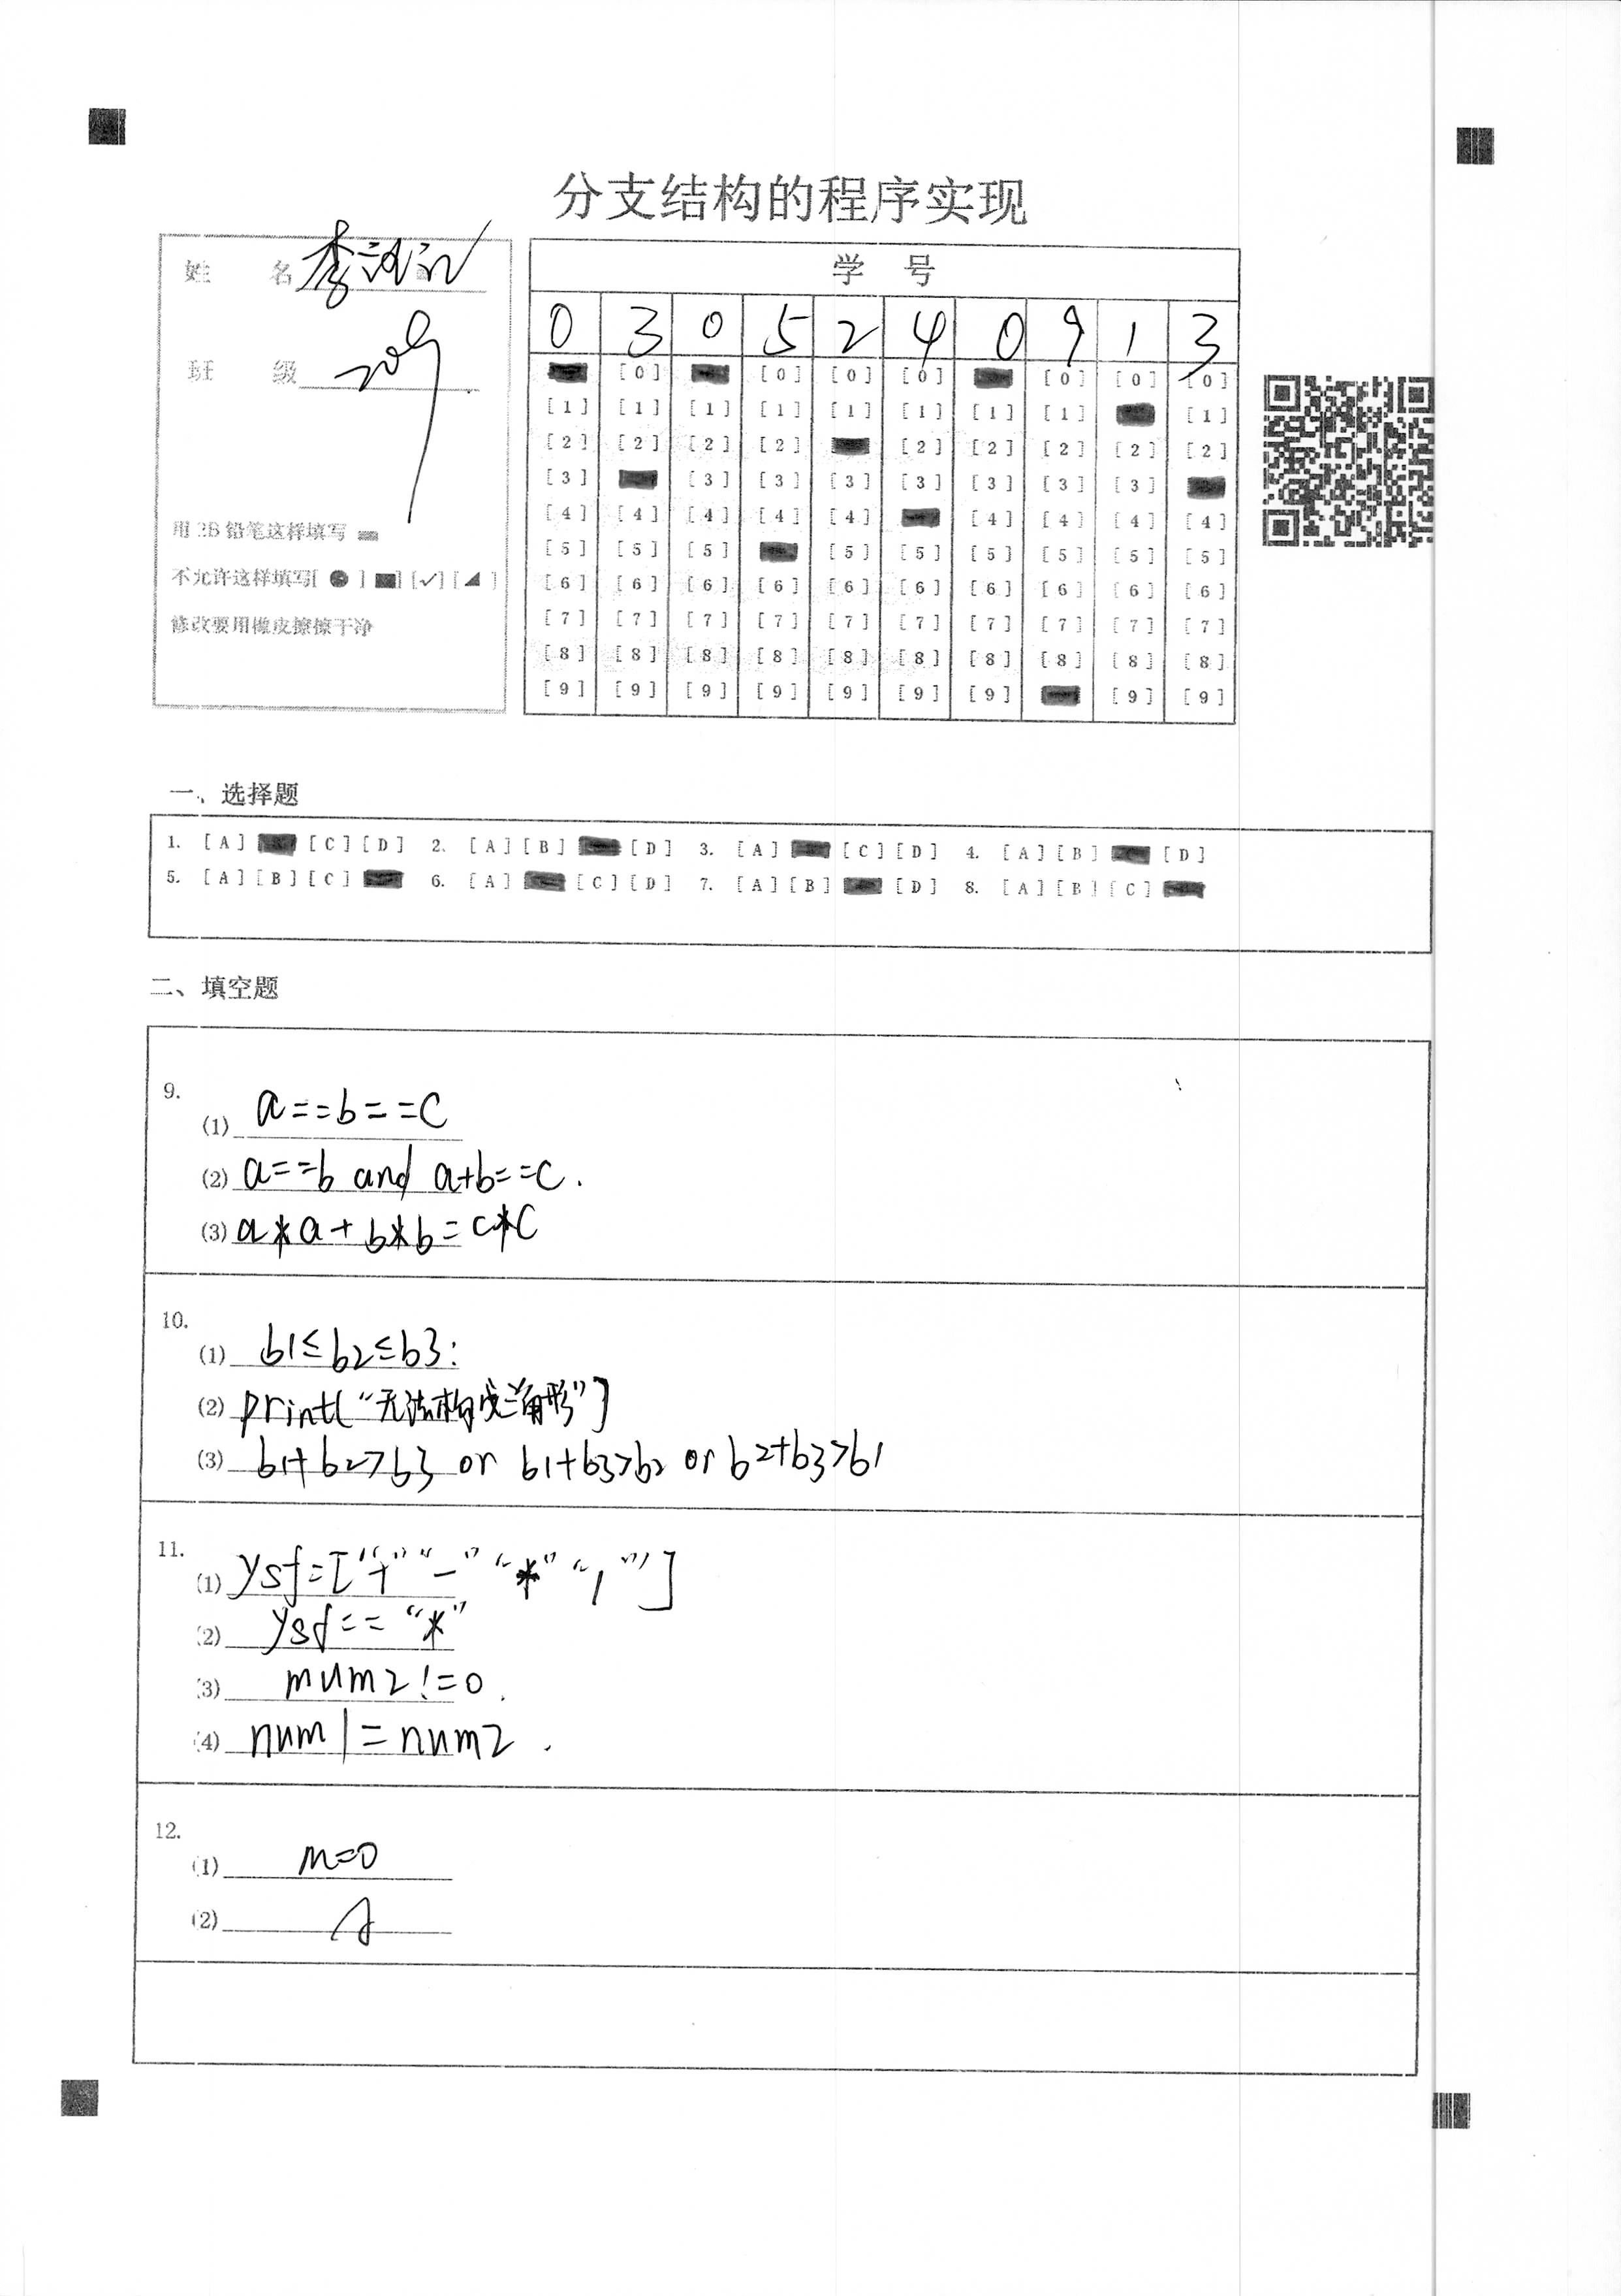 分支结构的程序实现
姓 名 李
班 级 209
用 2B 铅笔这样填写
不允许这样填写[ ● ] [■] [✓] [◢ ]
修改要用橡皮擦擦干净
学 号
0 3 0 5 2 4 0 9 1 3
[0] [0] [0] [0] [0] [0] [0]
[1] [1] [1] [1] [1] [1] [1] [1] [1]
[2] [2] [2] [2] [2] [2] [2] [2] [2]
[3] [3] [3] [3] [3] [3] [3] [3]
[4] [4] [4] [4] [4] [4] [4] [4] [4]
[5] [5] [5] [5] [5] [5] [5] [5] [5]
[6] [6] [6] [6] [6] [6] [6] [6] [6] [6]
[7] [7] [7] [7] [7] [7] [7] [7] [7] [7]
[8] [8] [8] [8] [8] [8] [8] [8] [8] [8]
[9] [9] [9] [9] [9] [9] [9] [9] [9]
一、选择题
1. [A] [C] [D] 2. [A] [B] [D] 3. [A] [C] [D] 4. [A] [B] [D]
5. [A] [B] [C] 6. [A] [C] [D] 7. [A] [B] [D] 8. [A] [B] [C]
二、填空题
9.
(1) a==b==c
(2) a==b and a+b==c.
(3) a*a+b*b=c*c
10.
(1) b1≤b2≤b3:
(2) print("无法构成三角形")
(3) b1+b2>b3 or b1+b3>b2 or b2+b3>b1
11.
(1) ysf=["+" "-" "*" "/"]
(2) ysf=="*"
(3) mum2!=0.
(4) num1=num2.
12.
(1) m=0
(2)